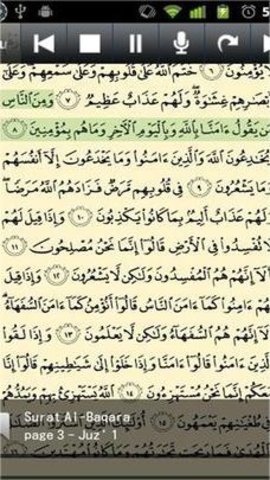 5
يُؤْمِنُونَ ٦ خَتَمَ ٱللَّهُ عَلَىٰ قُلُوبِهِمْ وَعَلَىٰ سَمْعِهِمْ وَعَلَىٰٓ
أَبْصَٰرِهِمْ غِشَٰوَةٌ وَلَهُمْ عَذَابٌ عَظِيمٌ ٧ وَمِنَ ٱلنَّاسِ
مَن يَقُولُ ءَامَنَّا بِٱللَّهِ وَبِٱلْيَوْمِ ٱلْءَاخِرِ وَمَا هُم بِمُؤْمِنِينَ ٨
يُخَٰدِعُونَ ٱللَّهَ وَٱلَّذِينَ ءَامَنُوا۟ وَمَا يَخْدَعُونَ إِلَّآ أَنفُسَهُمْ
وَمَا يَشْعُرُونَ ٩ فِى قُلُوبِهِم مَّرَضٌ فَزَادَهُمُ ٱللَّهُ مَرَضًا
وَلَهُمْ عَذَابٌ أَلِيمٌۢ بِمَا كَانُوا۟ يَكْذِبُونَ ١٠ وَإِذَا قِيلَ لَهُمْ
لَا تُفْسِدُوا۟ فِى ٱلْأَرْضِ قَالُوٓا۟ إِنَّمَا نَحْنُ مُصْلِحُونَ ١١
أَلَآ إِنَّهُمْ هُمُ ٱلْمُفْسِدُونَ وَلَٰكِن لَّا يَشْعُرُونَ ١٢ وَإِذَا قِيلَ
لَهُمْ ءَامِنُوا۟ كَمَآ ءَامَنَ ٱلنَّاسُ قَالُوٓا۟ أَنُؤْمِنُ كَمَآ ءَامَنَ ٱلسُّفَهَآءُ
أَلَآ إِنَّهُمْ هُمُ ٱلسُّفَهَآءُ وَلَٰكِن لَّا يَعْلَمُونَ ١٣ وَإِذَا لَقُوا۟
ٱلَّذِينَ ءَامَنُوا۟ قَالُوٓا۟ ءَامَنَّا وَإِذَا خَلَوْا۟ إِلَىٰ شَيَٰطِينِهِمْ قَالُوٓا۟ إِنَّا
مَعَكُمْ إِنَّمَا نَحْنُ مُسْتَهْزِءُونَ ١٤ ٱللَّهُ يَسْتَهْزِئُ بِهِمْ وَيَمُدُّهُمْ
فِى طُغْيَٰنِهِمْ يَعْمَهُونَ ١٥ أُو۟لَٰٓئِكَ ٱلَّذِينَ ٱشْتَرَوُا۟ ٱلضَّلَٰلَةَ
Surat Al-Baqara
page 3 - Juz' 1